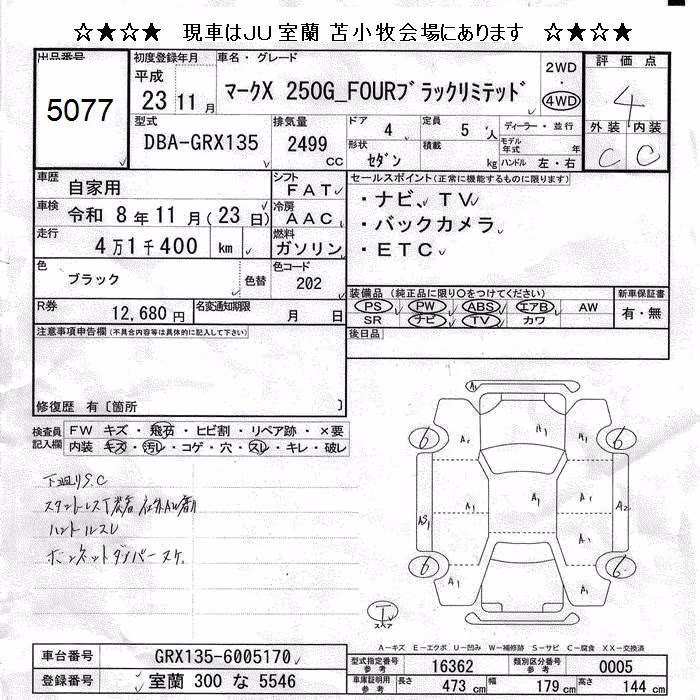 ☆★☆★ 現車はJU室蘭 苫小牧会場にあります ☆★☆★
出品番号
5077
初度登録年月
平成
23 11 月
車名・グレード
マークX 250G_FOURブラックリミテッド
2WD
・
4WD
評価点
4
外装 内装
C C
型式
DBA-GRX135
排気量
2499
CC
ドア
4
定員
5 人
形状
セダン
積載
kg
ディーラー・並行
モデル年式 年
ハンドル 左・右
車歴
自家用
シフト
FAT
車検
令和 8年11月(23日)
冷房
AAC
走行
4万1千400 km
燃料
ガソリン
色
ブラック
色替
色コード
202
R券
12,680 円
名変通知期限
月 日
セールスポイント(正常に機能するものに限ります)
・ナビ、TV
・バックカメラ
・ETC
装備品 (純正品に限り○をつけてください)
新車保証書
PS PW ABS エアB AW
SR ナビ TV カワ
有・無
後日品
注意事項申告欄(不具合内容等は具体的に記入して下さい)
修復歴 有〔箇所 〕
検査員
記入欄
FW キズ・飛石・ヒビ割・リペア跡・×要
内装 キズ・汚レ・コゲ・穴・スレ・キレ・破レ
下廻りS.C
ハンドルスレ
ボンネットダンパーヌケ
A1
6 A1 A1 6
A1 A1
AS1 A1 A1 A2
6 A1 A1 6
A1
T
スペア
A-キズ E-エクボ U-凹み W-補修跡 S-サビ C-腐食 XX-交換済
車台番号
GRX135-6005170
登録番号
室蘭 300 な 5546
型式指定番号
参考
16362
類別区分番号
参考
0005
車庫証明用
参考
長さ 473 cm 幅 179 cm 高さ 144 cm